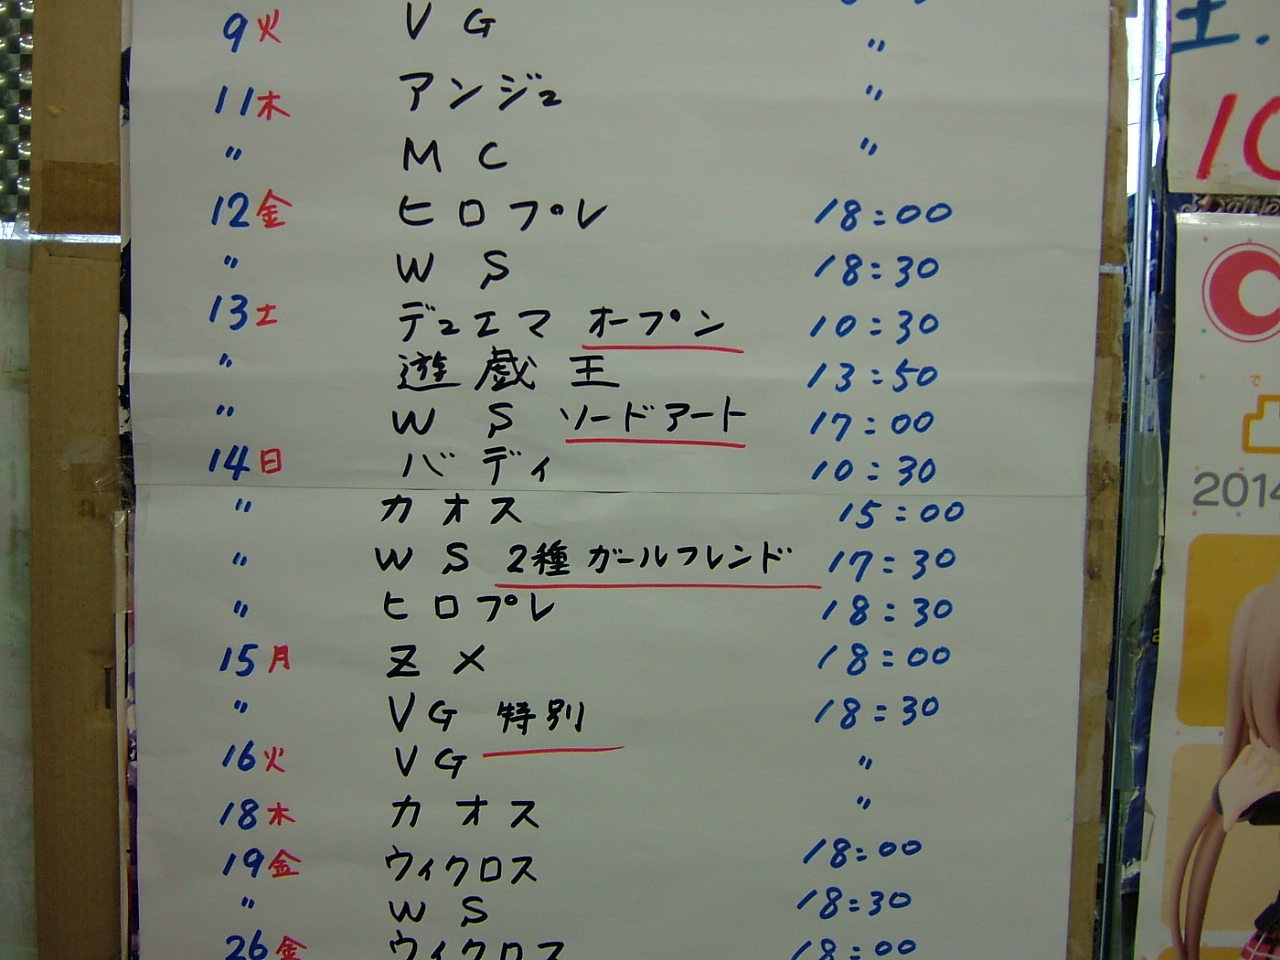 9 火 V G 〃
11 木 アンジュ 〃
〃 M C 〃
12 金 ヒロプレ 18:00
〃 W S 18:30
13 土 デュエマ オープン 10:30
〃 遊戯王 13:50
〃 W S ソードアート 17:00
14 日 バディ 10:30
〃 カオス 15:00
〃 W S 2種 ガールフレンド 17:30
〃 ヒロプレ 18:30
15 月 Z X 18:00
〃 V G 特別 18:30
16 火 V G 〃
18 木 カオス 〃
19 金 ウィクロス 18:00
〃 W S 18:30
26 金 ウィクロス 18:00
王.
10
で
2014